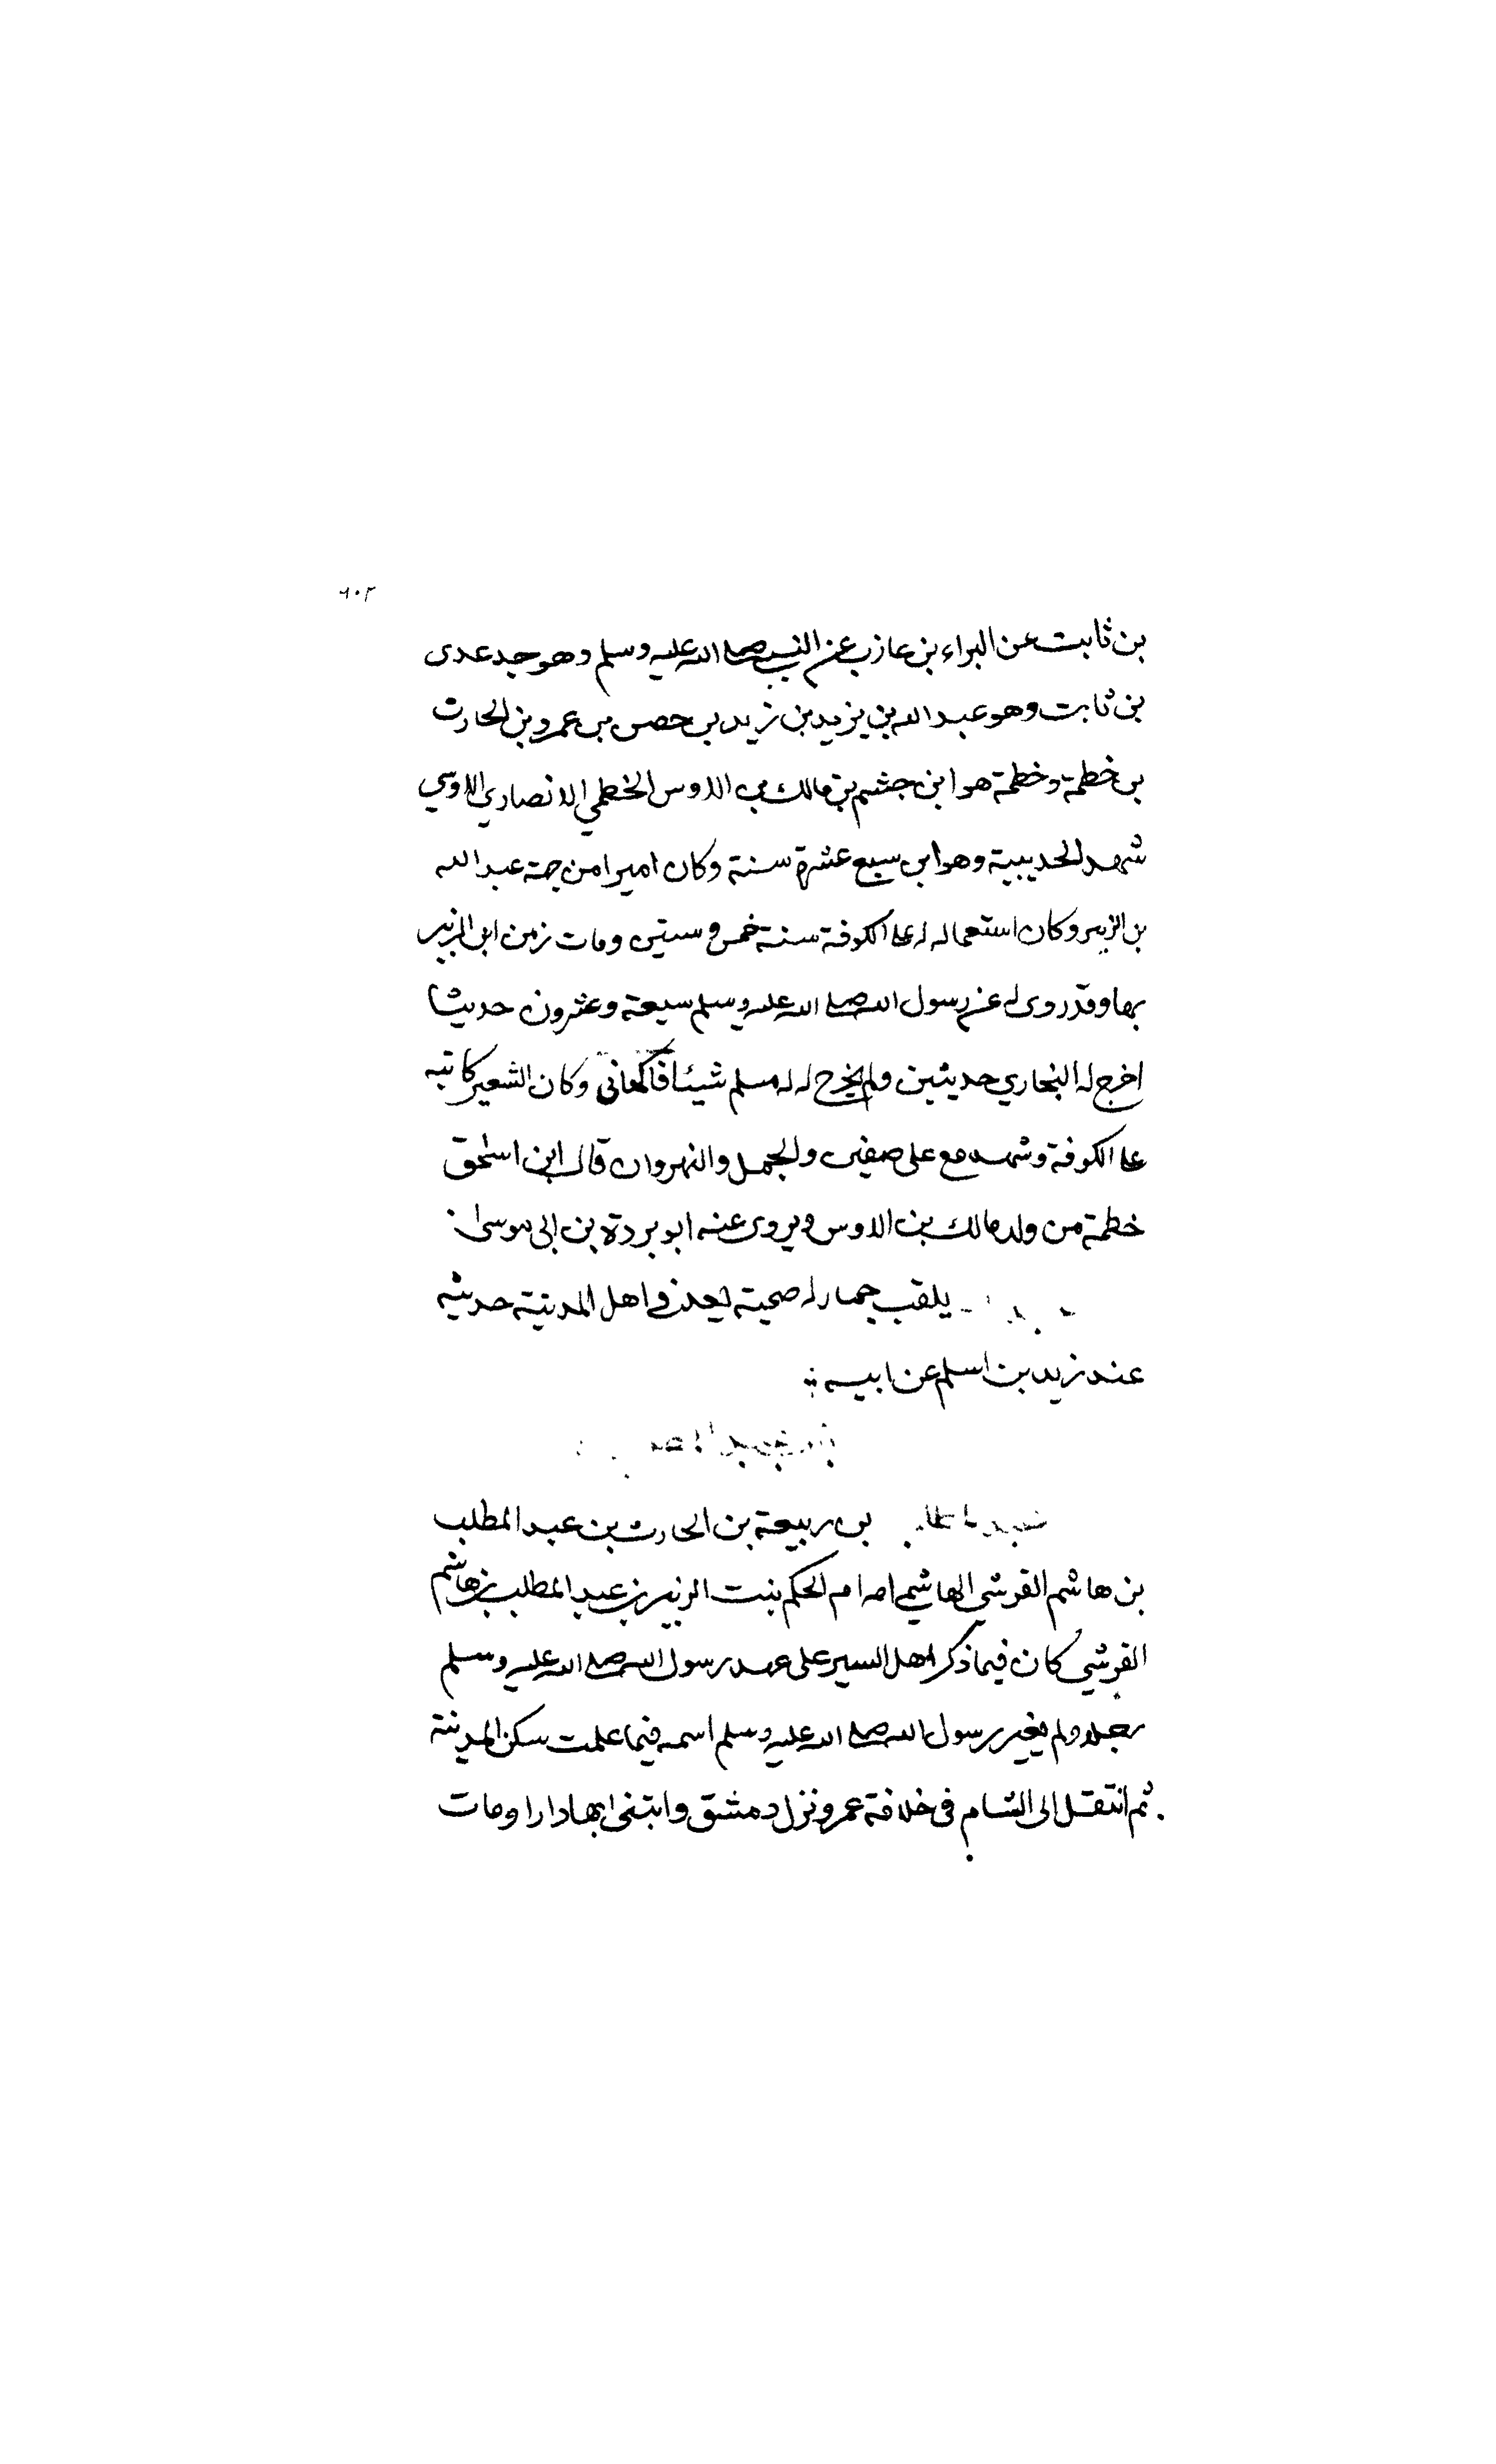 ٦٠٢
بن ثابت عن البراء بن عازب عن النبي صلى الله عليه وسلم وهو جد عدى
بن ثابت وهو عبد الله بن يزيد بن زيد بن حصن بن عمرو بن الحارث
بن خطمة وخطمة هو ابن جشم بن مالك بن الاوس الخطمي الانصاري الاوسي
شهد الحديبية وهو ابن سبع عشرة سنة وكان اميرا من جهة عبد الله
بن الزبير وكان استعماله له على الكوفة سنة خمس وستين ومات زمن ابن الزبير
بها وقد روى له عن رسول الله صلى الله عليه وسلم سبعة وعشرون حديثا
اخرج له البخاري حديثين ولم يخرج له مسلم شيئا وكان الشعبي كاتبه
على الكوفة وشهد مع علي صفين والجمل والنهروان قال ابن اسحق
خطمة من ولد مالك بن الاوس ويروى عنه ابو بردة بن ابي موسى
يلقب حمار له صحبة يعد في اهل المدينة حديثه
عند زيد بن اسلم عن ابيه
بن ربيعة بن الحارث بن عبد المطلب
بن هاشم القرشي الهاشمي امه ام الحكم بنت الزبير بن عبد المطلب بن هاشم
القرشي كان فيما ذكر اهل السير على عهد رسول الله صلى الله عليه وسلم
رجلا ولم يغير رسول الله صلى الله عليه وسلم اسمه فيما علمت سكن المدينة
ثم انتقل الى الشام في خلافة عمر ونزل دمشق وابتنى بها دارا ومات